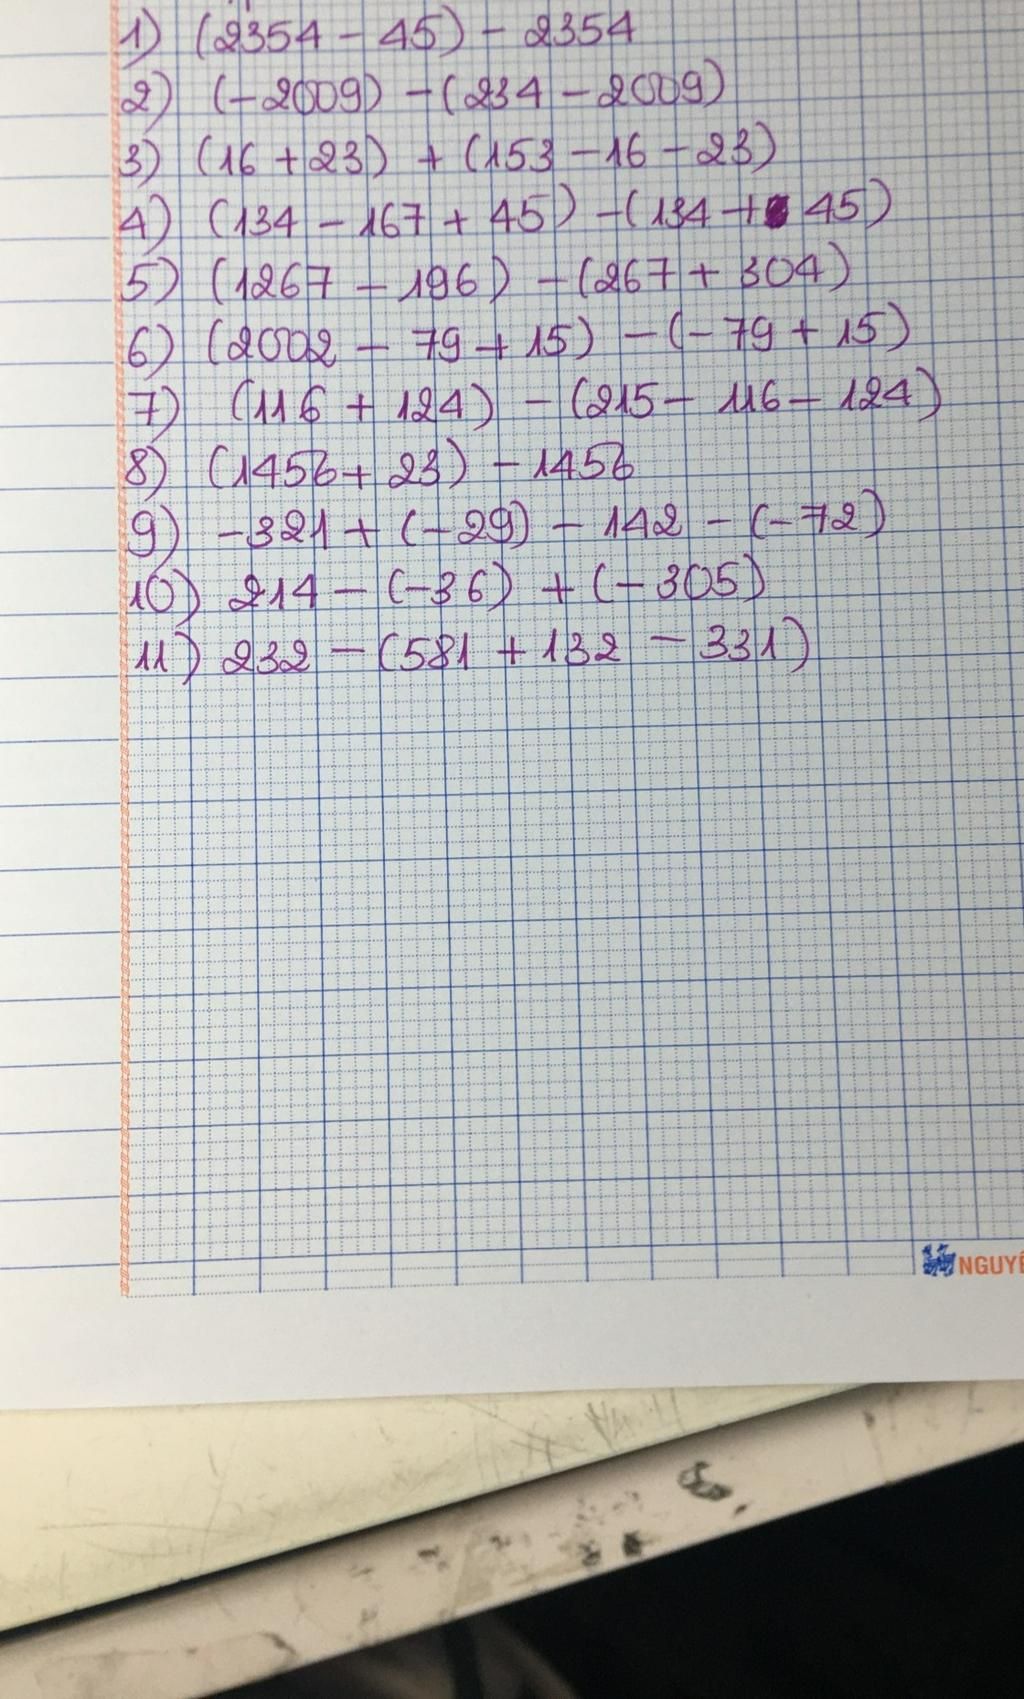 1) (2354 - 45) - 2354
2) (-2009) - (234 - 2009)
3) (16 + 23) + (153 - 16 - 23)
4) (134 - 167 + 45) - (134 + 45)
5) (1267 - 196) - (267 + 304)
6) (2002 - 79 + 15) - (-79 + 15)
7) (116 + 124) - (215 - 116 - 124)
8) (1456 + 23) - 1456
9) -321 + (-29) - 142 - (-72)
10) 214 - (-36) + (-305)
11) 232 - (581 + 132 - 331)